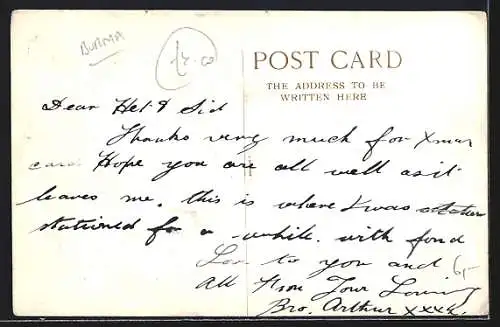 BURMA
POST CARD
THE ADDRESS TO BE
WRITTEN HERE
Dear Het & Sid
Thanks very much for Xmas
card Hope you are all well as it
leaves me. this is where I was
stationed for a while. with fond
Love to you and
6/-
all from Your Loving
Bro. Arthur xxxx.